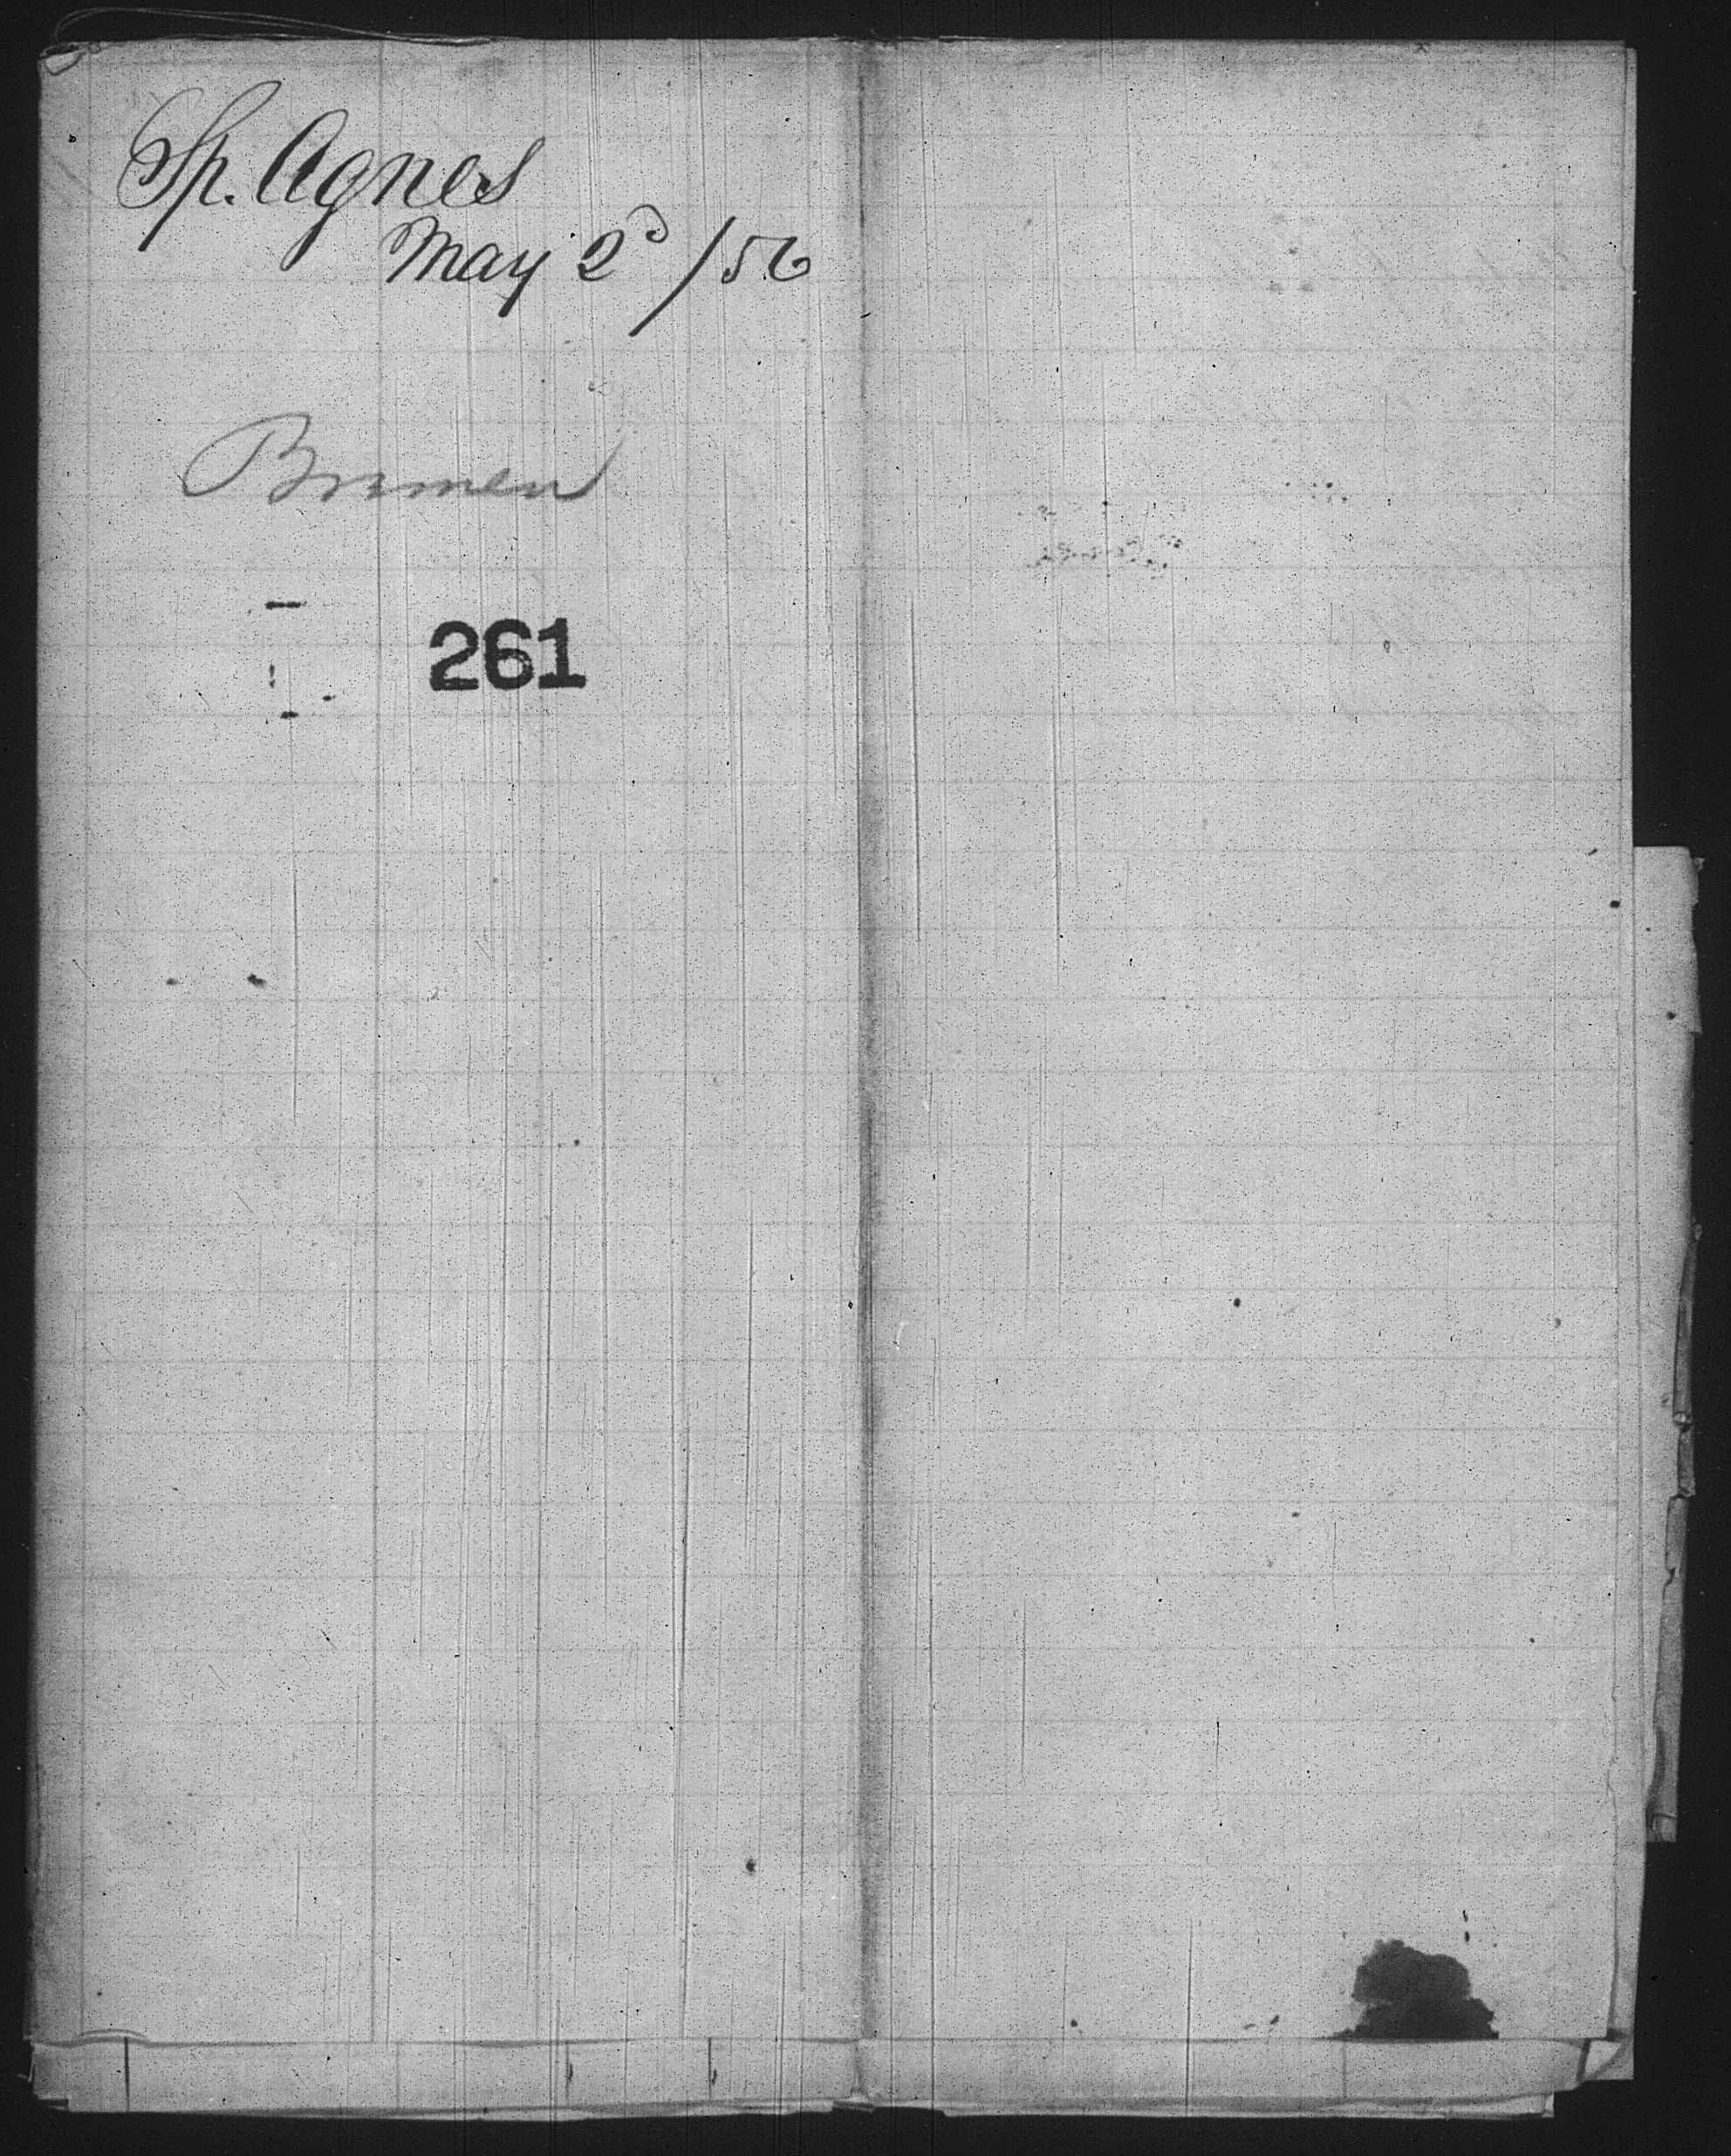 Sp. Agnes
May 2d /56
Bremen
261